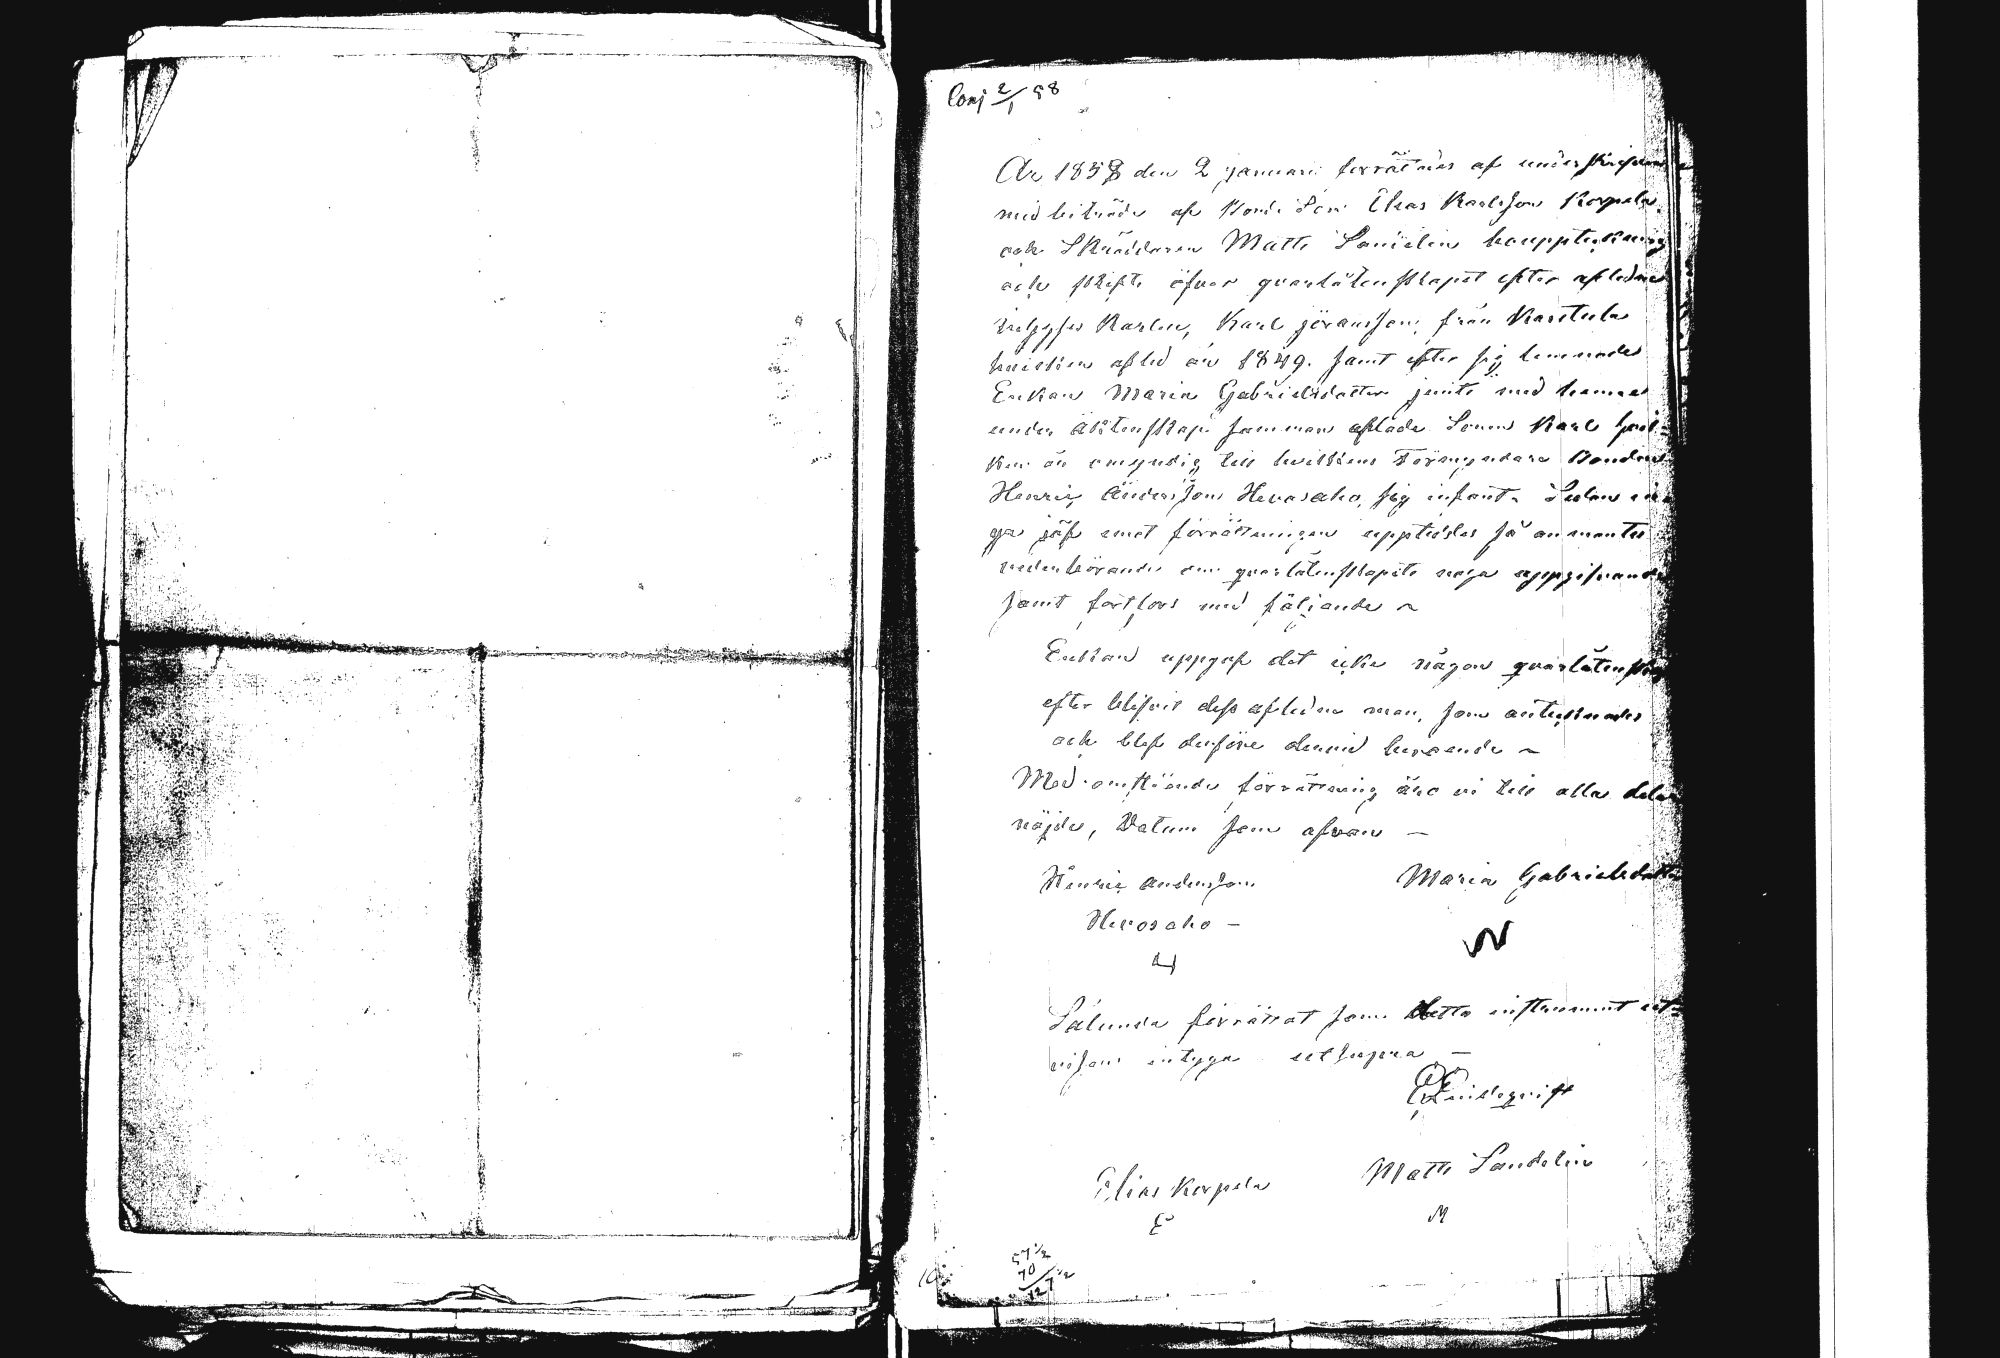 Conj 2/1 58
År 1858 den 2 januari förrättades af underskrifvne
med biträde af Bonde Son Elias Karlsson Korpela
och Skräddaren Matts Sandelin bouppteckning
och skifte öfver qvarlåtenskapet efter aflidne
Inhyses Karlen, Karl Jöransson från Karstula
hvilken afled år 1849. samt efter sig lemnade
Enkan Maria Gabrielsdotter jemte med henne
under äktenskap samman aflade Sonen Karl hvil-
ken än omyndig till hvilkens Förmyndare Bonden
Henric Andersson Hevosaho sig infant. Sedan in-
ga jäf emot förrättningen upptäcktes så anmantes
vederbörande om qvarlåtenskapets noga uppgifvande
samt fortfors med följande ~
Enkan uppgaf det icke någon qvarlåtenskap
efter blifvit dess aflidne man, som antecknades
och blef derföre dervid beroende ~
Med omstående förrättning äro vi till alla delar
nöjde, Datum som ofvan —
Henric Andersson
Hevosaho —
Maria Gabrielsdotter
Sålunda förrättat som detta instrument ut-
visar intyga ut supra —
Elias Korpela
E
Matts Sandelin
M
57 1/2
70
127 1/2